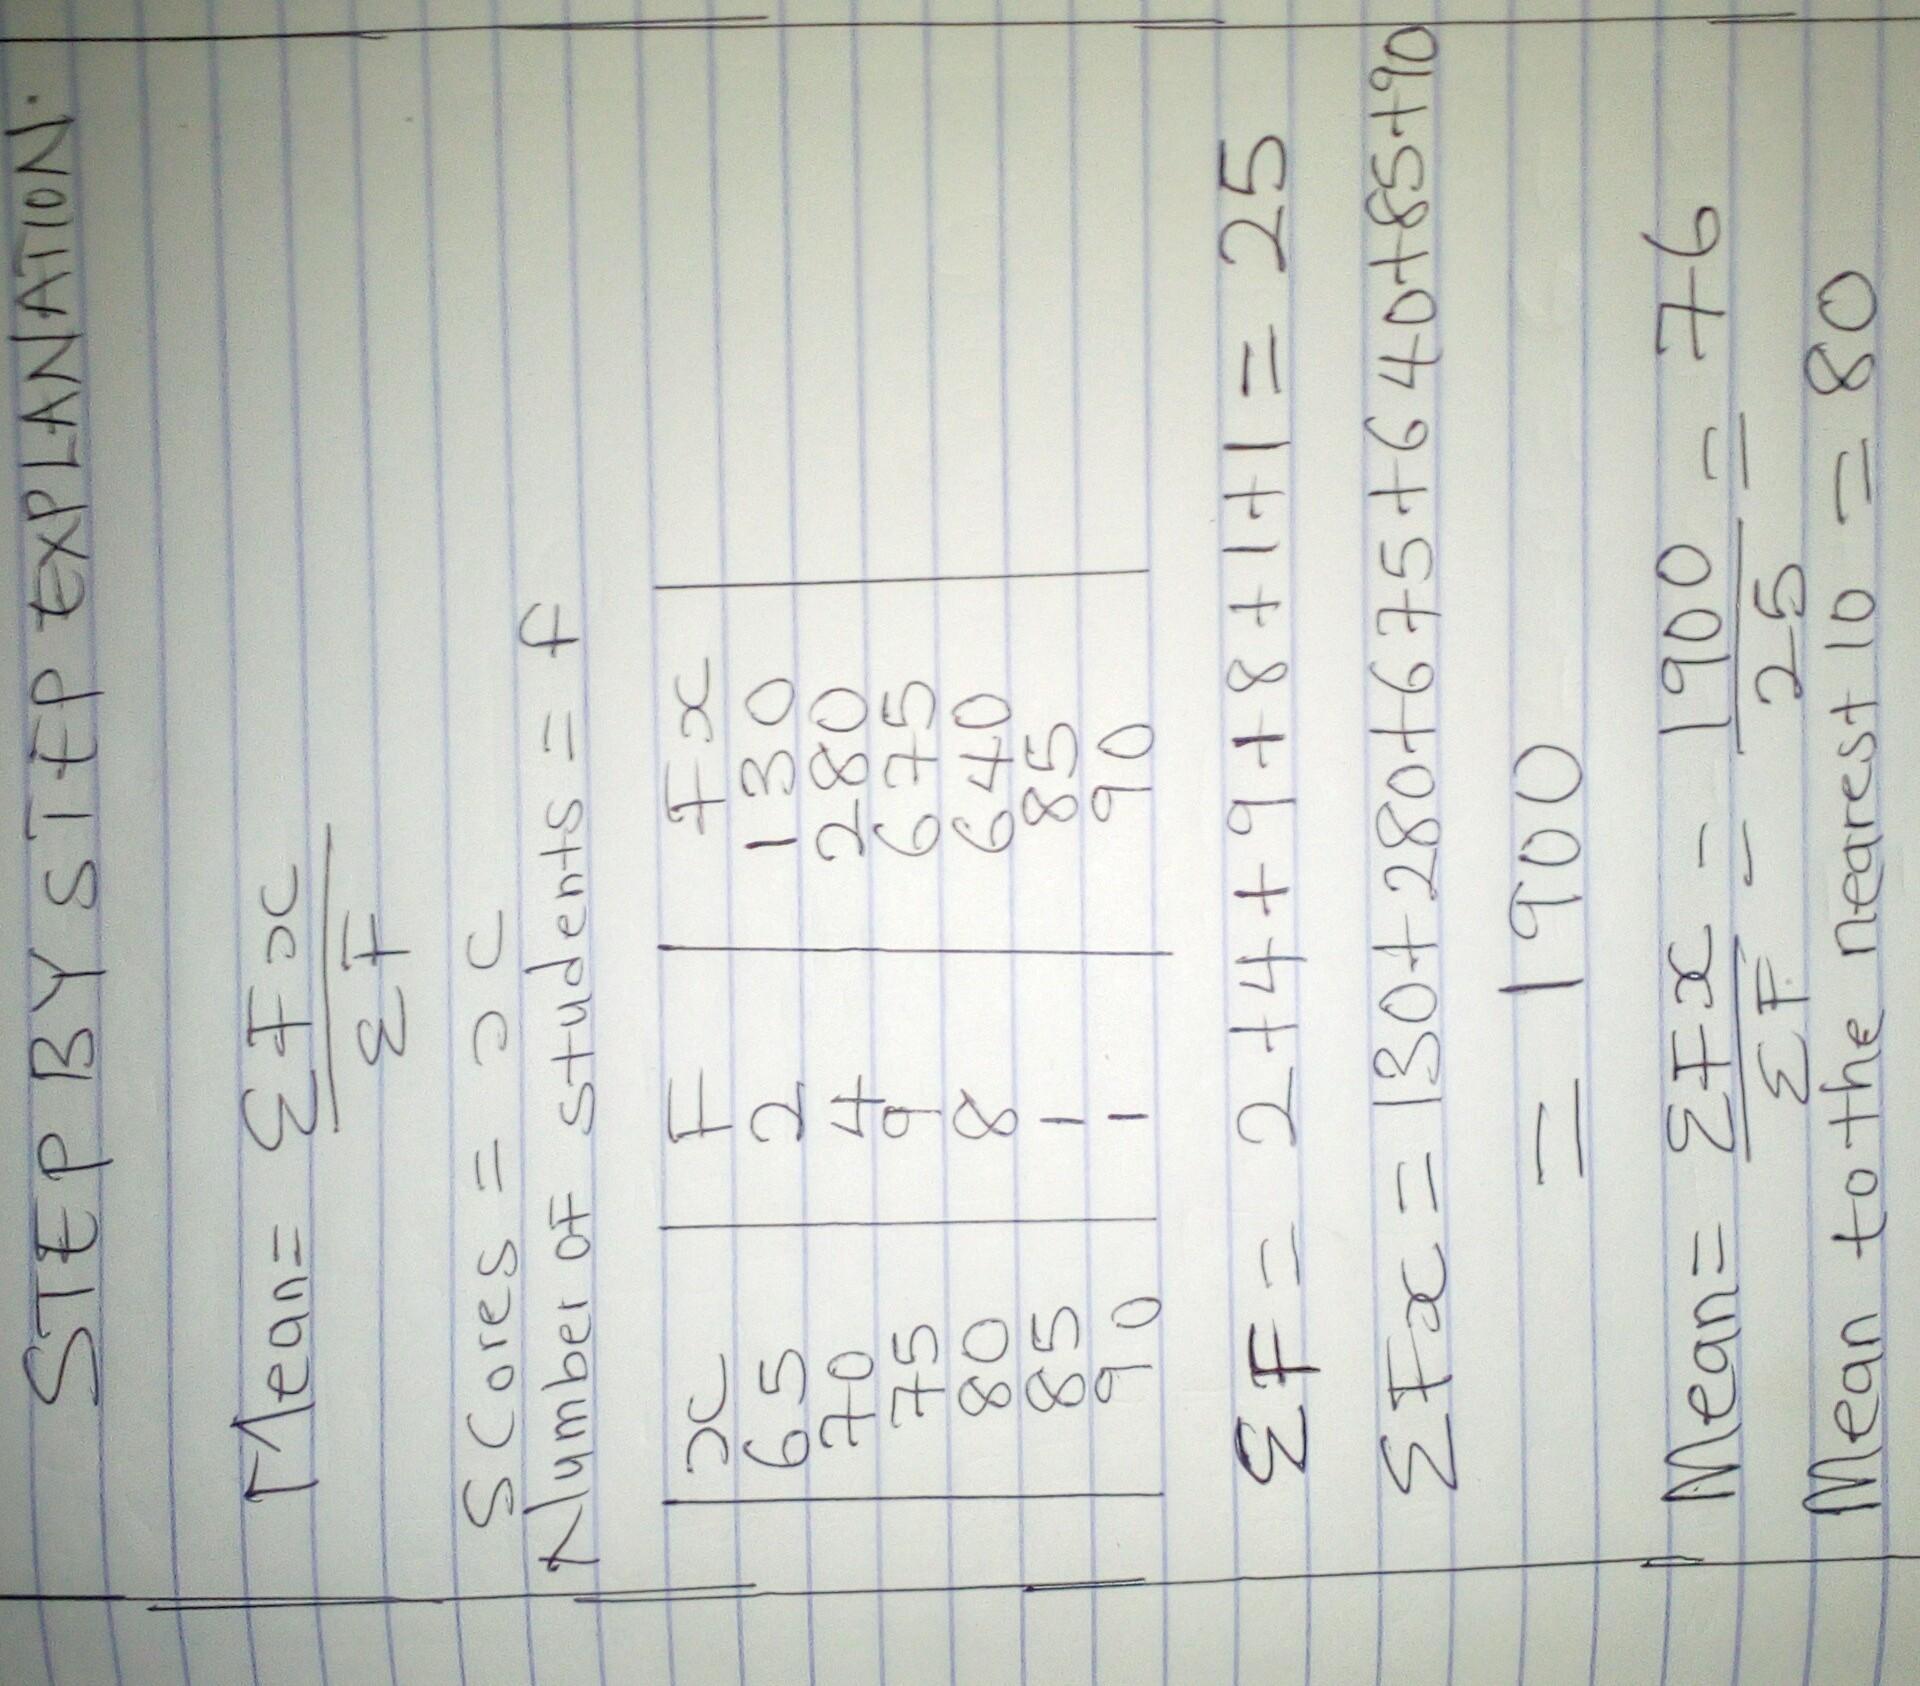 STEP BY STEP EXPLANATION.
Mean = ΣFx
ΣF
Scores = x
Number of students = f
x F Fx
65 2 130
70 4 280
75 9 675
80 8 640
85 1 85
90 1 90
ΣF = 2+4+9+8+1+1 = 25
ΣFx = 130+280+675+640+85+90
= 1900
Mean = ΣFx = 1900 = 76
ΣF 25
Mean to the nearest 10 = 80